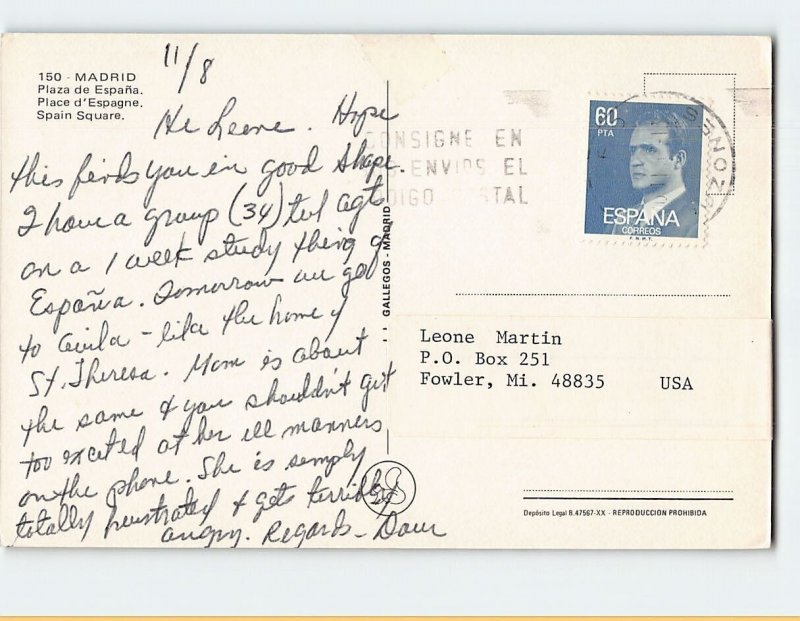 150 - MADRID
Plaza de España.
Place d'Espagne.
Spain Square.
11/8
Hi Leone. Hope
this finds you in good shape.
I have a group (34) tvl agts
on a 1 week study thing of
España. Tomorrow we go
to Avila - like the home of
St. Theresa. Mom is about
the same & you shouldn't get
too excited at her ill manners
on the phone. She is simply
totally frustrated & gets terribly
angry. Regards -
GALLEGOS - MADRID
CONSIGNE EN
ENVIOS EL
CODIGO POSTAL
60
PTA
ESPAÑA
CORREOS
F.N.M.T.
Leone Martin
P.O. Box 251
Fowler, Mi. 48835 USA
Depósito Legal B.47567-XX - REPRODUCCION PROHIBIDA